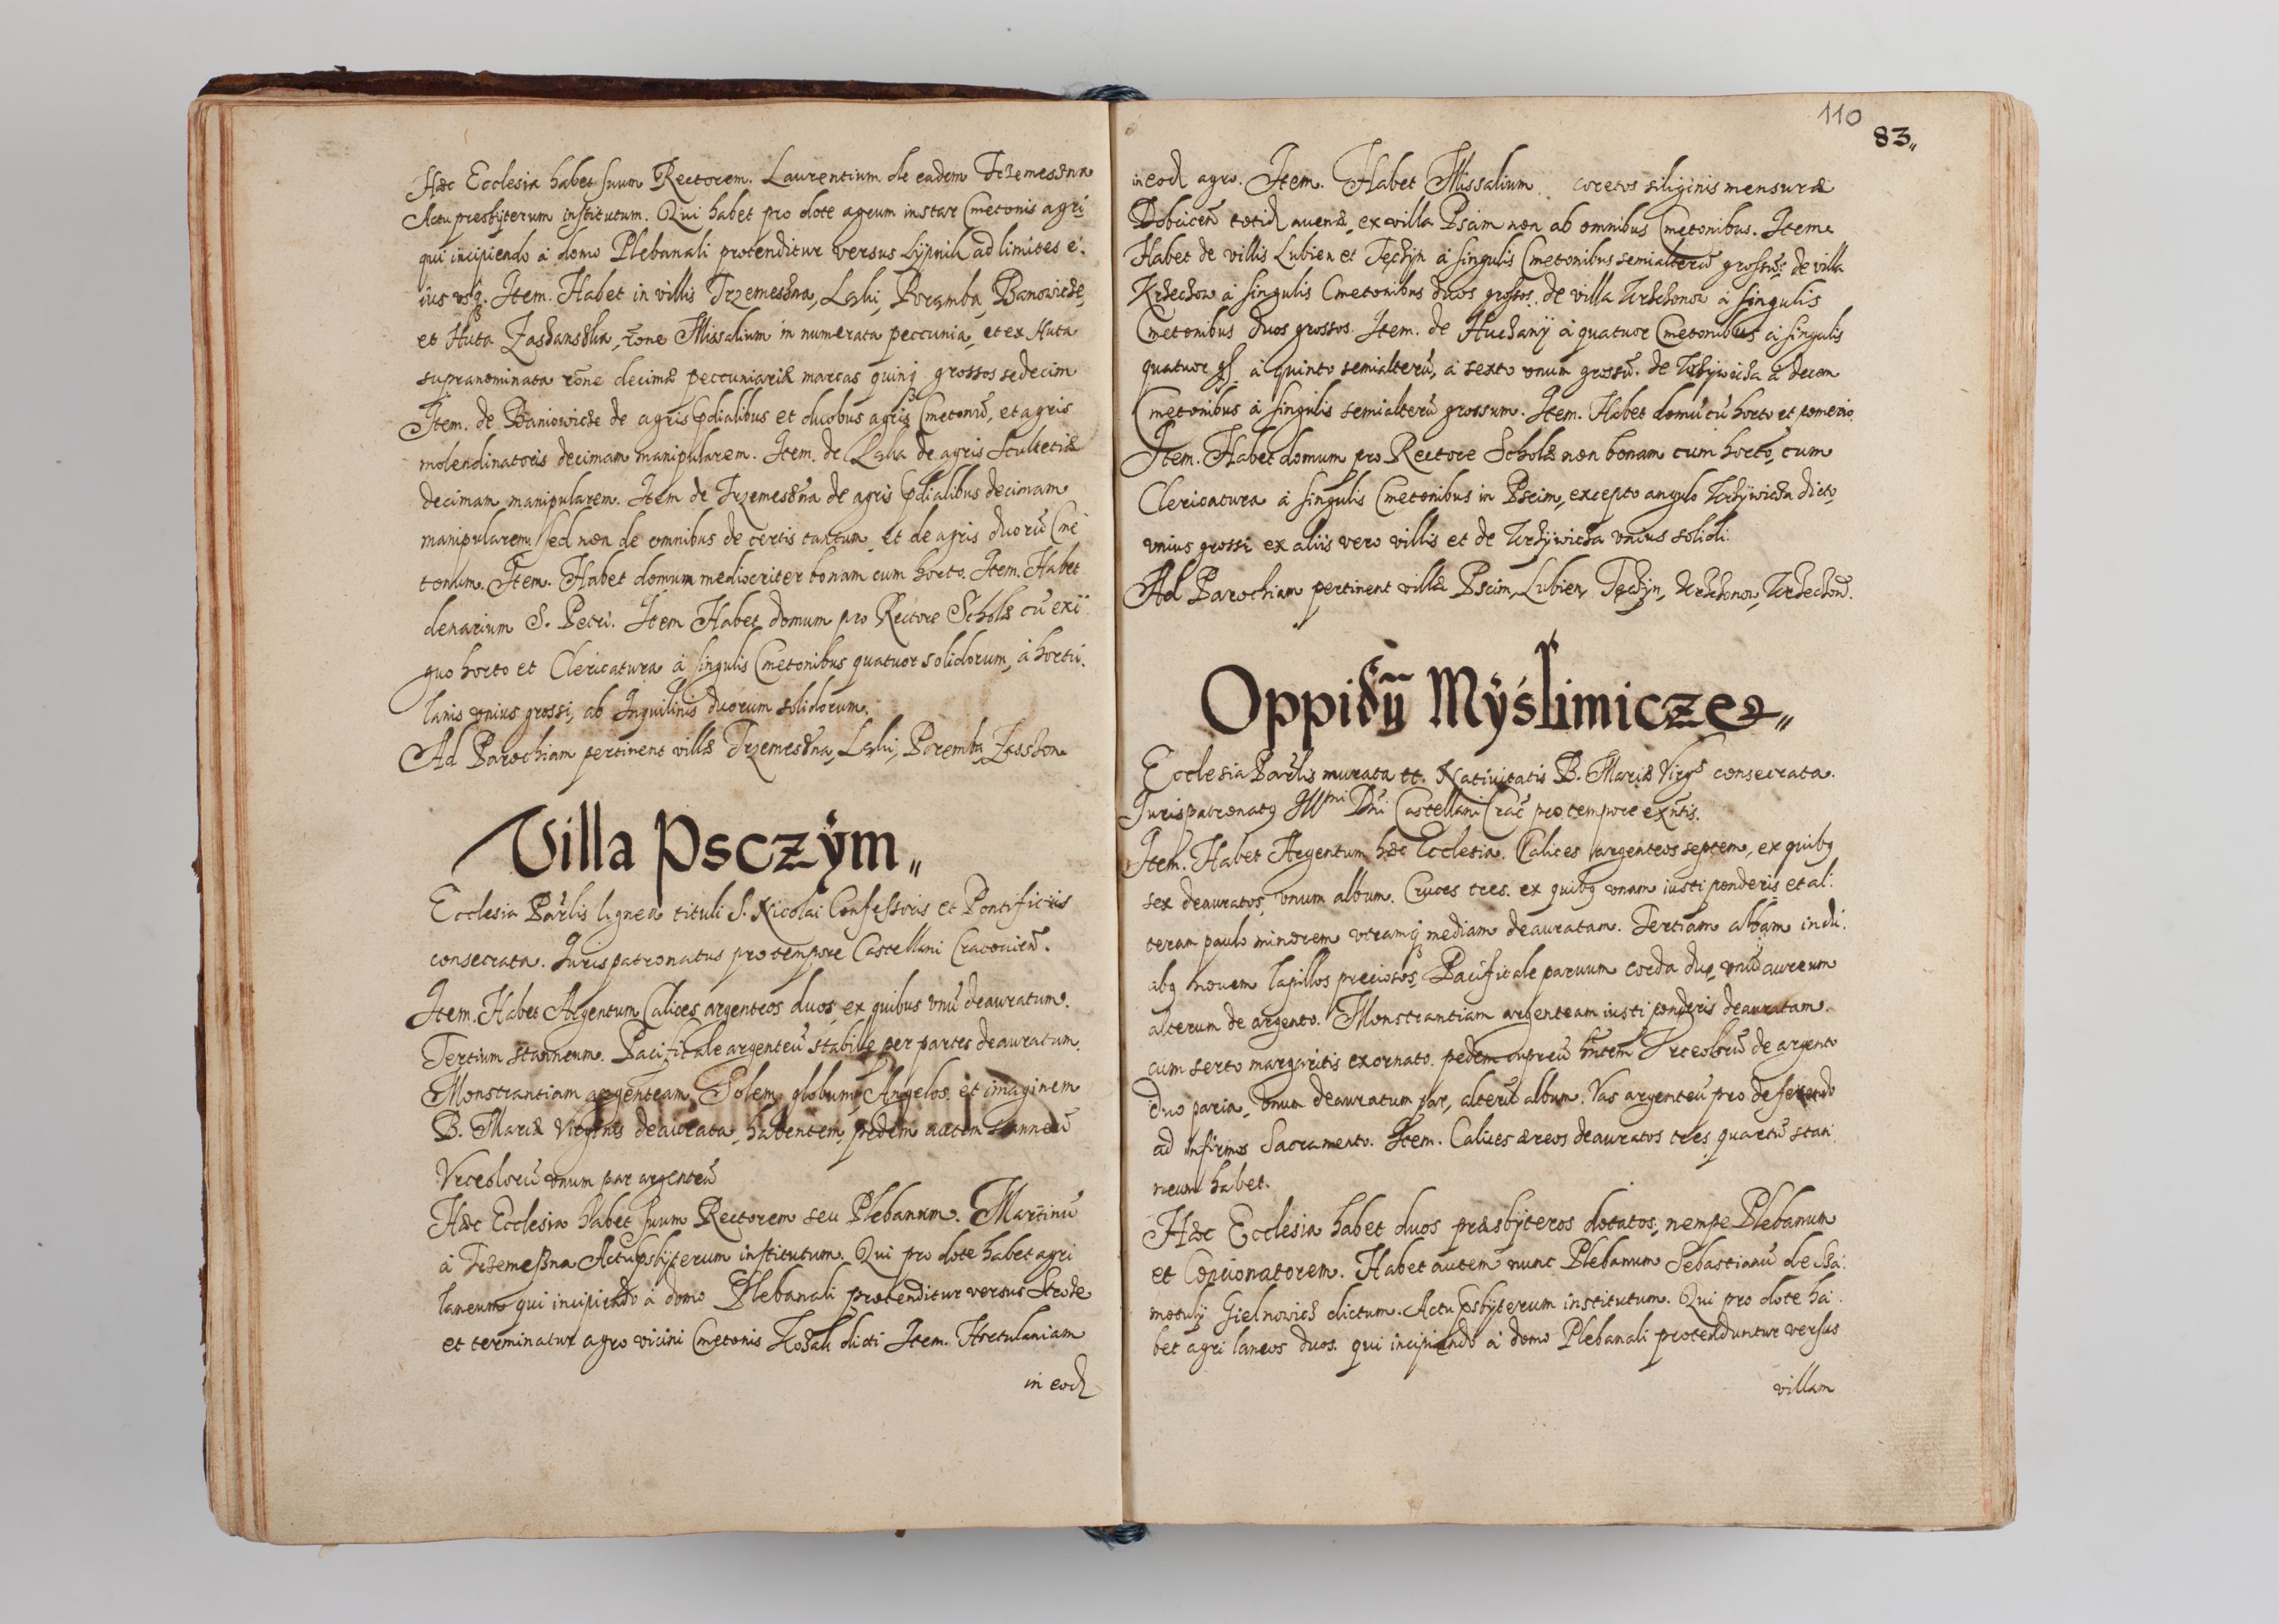 Hæc Ecclesia habet suum Rectorem. Laurentium de eadem Trzemeszna
Actu presbÿterum institutum. Qui habet pro dote agrum instar Cmetonis agri
qui incipiendo à domo Plebanali protenditur versus Lÿpnik ad limites e:
ius usq. Item. Habet in villis Trzemeszna, Leki, Poramba, Banowicze,
et Huta Zaszanska, rõne Missalium in numerata peccunia, et ex Huta
supranominata rõne decimæ peccuniariæ marcas quinq grossos sedecim
Item. de Baniowicze de agris prdialibus et duobus agris Cmetonũ, et agris
molendinatoris decimam manipularem. Item. de Leka de agris Scultetiæ
decimam manipularem. Item de Trzemeszna de agris prdialibus decimam
manipularem. sed non de omnibus de certis tantum, et de agris duorũ Cme
tonum. Item. Habet domum mediocriter bonam cum horto. Item. Habet
denarium S. Petri. Item Habet domum pro Rectore Scholæ cũ exi
guo horto et Clericatura à singulis Cmetonibus quatuor solidorum, à hortu:
lanis unius grossi, ab Inquilinis duorum solidorum.
Ad Parochiam pertinent villæ Trzemeszna, Leki, Poremba, Zasszon
Villa Psczÿm„
Ecclesia Parlis lignea tituli S. Nicolai Confessoris et Pontificis
consecrata. Juris patronatus pro tempore Castellani Cracovien̄.
Item. Habet Argentum Calices argenteos duos, ex quibus unũ deauratum.
Tertium stanneum. Pacificale argenteũ stabille per partes deauratum.
Monstrantiam argenteam. Solem, globum, Angelos, et imaginem
B. Mariæ Virginis deaurata, habentem, pedem autem stanneũ
Urceolorũ unum par argenteũ
Hæc Ecclesia habet suum Rectorem seu Plebanum. Martinũ
à Trzemeßna Actu psbÿterum institutum. Qui pro dote habet agri
laneum qui incipiendo à domo Plebanali protenditur versus Strode
et terminatur agro vicini Cmetonis Kozak dicti Item. Hortulaniam
in eod
110
83„
in eod agro. Item. Habet Missalium. coretos siliginis mensuræ
Dobcicen̄ totid avenæ, ex villa Pscim non ab omnibus Cmetonibus. Item.
Habet de villis Lubien et Tęczÿn à singulis Cmetonibus semialterũ grossũ: de villa
Krzeczow à singulis Cmetonibus duos grossos. de villa Krzczonow à singulis
Cmetonibus duos grossos. Item. de Huczanÿ à quatuor Cmetonibus à singulis
quatuor gs. à quinto semialterũ, à sexto unum grossũ. de Krzÿwicza à decem
Cmetonibus à singulis semialterũ grossum. Item. Habet domũ cũ horto et pomerio.
Item. Habet domum pro Rectore Scholæ non bonam cum horto, cum
Clericatura à singulis Cmetonibus in Pscim, excepto angulo Krzÿwicza dicto,
unius grossi ex aliis vero villis et de Krzÿwicza unius solidi.
Ad Parochiam pertinent villæ Pscim, Lubien, Tęczÿn, Krzczonow, Krzeczow̃.
Oppidũ Mÿslimicze„
Ecclesia Parlis murata tt. Nativitatis B. Mariæ Virgs consecrata.
Juris patronatq Illmi Dni Castellani Crac̃ pro tempore exñtis.
Item. Habet Argentum hæc Ecclesia. Calices argenteos septem, ex quibq
sex deauratos, unum album. Cruces tres. ex quibq unam iusti ponderis et al:
teram paulo minorem utramq mediam deauratam. Tertiam albam in di:
abq novem lapillos preciosos, Pacificale parvum corda duo, unũ aureum
alterum de argento. Monstrantiam argenteam iusti ponderis deauratam.
cum serto margaritis exornato. pedem cupreũ hñtem Urceolorũ de argento
duo paria, unum deauratum par, alterũ album. Vas argenteũ pro deferendo
ad infirmos Sacramento. Item. Calices æreos deauratos tres, quartũ stan:
neum habet.
Hæc Ecclesia habet duos præsbÿteros dotatos, nempe Plebanum
et Concionatorem. Habet autem nunc Plebanum Sebastianũ de Sza:
motulÿ Gielnowicz dictum. Actu psbÿterum institutum. Qui pro dote ha:
bet agri laneos duos. qui incipiendo à domo Plebanali protenduntur versus
villam